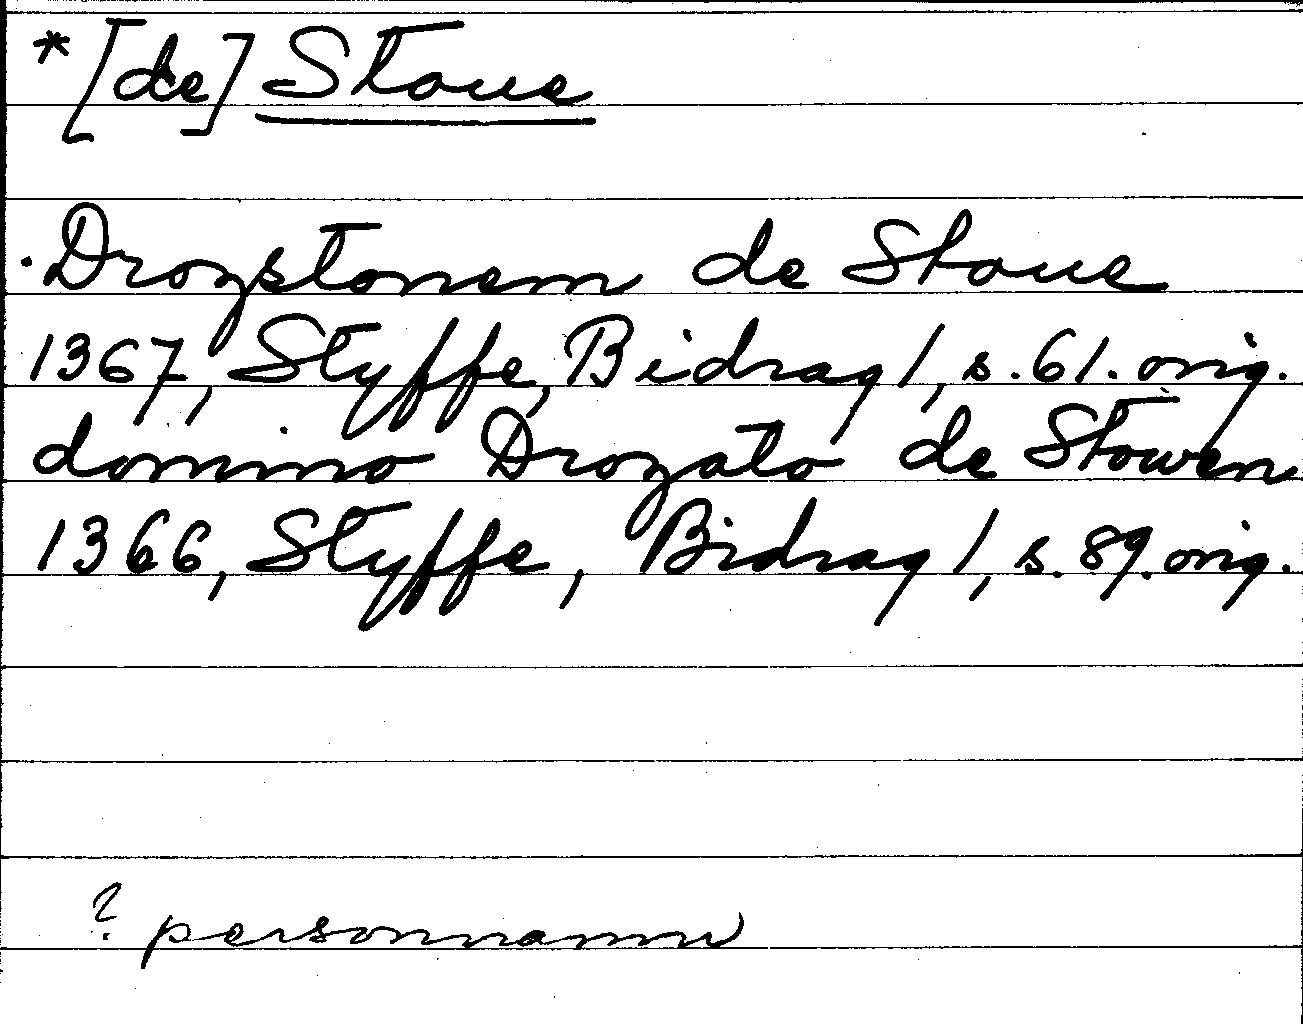 *[de] Stoue
. Drozstonem de Stoue
1367, Styffe, Bidrag 1, s. 61. orig.
domino Drozato de Stowen
1366, Styffe, Bidrag 1, s. 89. orig.
? personnamn